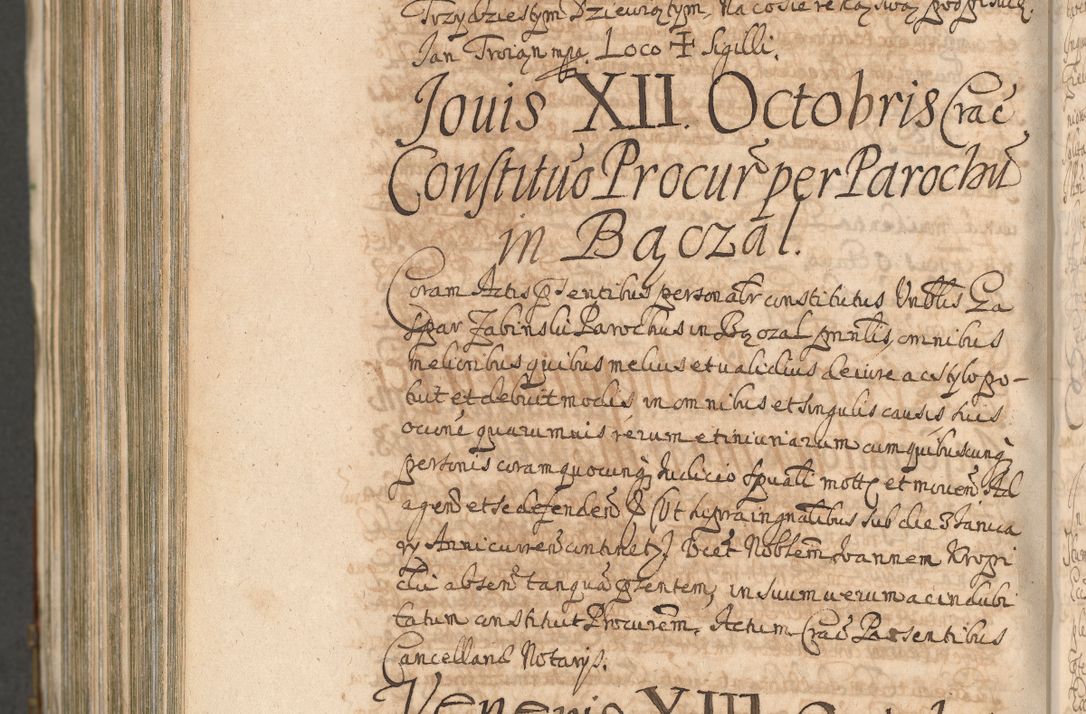 Trzydziestym Dziewiątym, Na co się ręką swą podpisuię.
Jan Troian mpa. Loco ☩ Sigilli.
Jouis XII. Octobris Crac̃
Constitutĩo Procur̃ per Parochũ
in Bączal.
Coram Actis p̃sentibus personalr̃ constitutus Vnblis Ga
spar Żabinski Parochus in Bączal gnr̃alis, omnibus
melioribus quibus melius et validius de iure ac stylo po-
tuit et debuit modis in omnibus et singulis causis suis
oc͠cone quarumuis rerum et iniuriarum cum quibuscunq̃
personis coram quocunq̃ Iudicio Spũali mottis et mouen̄ Ad
agen̄ et se defenden̄ (Vt supra in gnãlibus sub die 3 Janua
ry Anni curren̄ continet͠) Nobilem Joannem Kropi
cki absen̄ tanquã p̃sentem, in suum uerum ac indubi
tatum constituit Procurẽm. Actum Crac̃ Praesentibus
Cancellariæ Notarijs.
Veneris XIII. Octobris